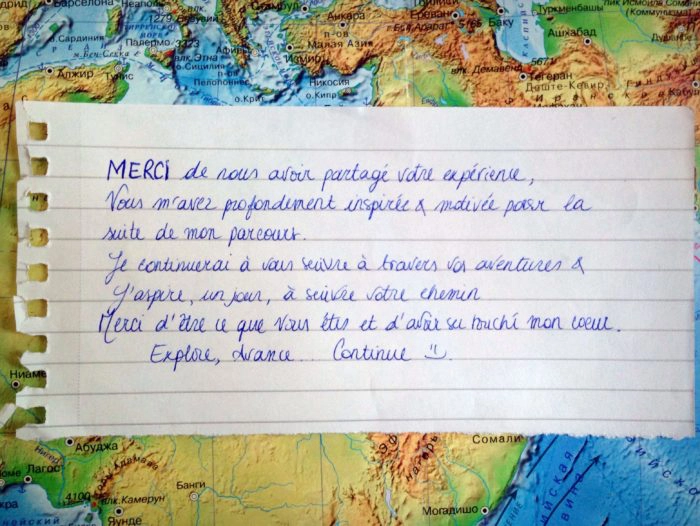 Барселона
Неаполь
Стамбул
Анкара
Ереван
Баку
Туркменбашы
1279
Везувий
о.Сардиния
Палермо
3323
влк.Этна
о.Сицилия
Афины
Измир
п-ов
Малая Азия
г.Бол.Арарат
5165
Ашхабад
Алжир
Тунис
Пелопоннес
Никосия
о.Крит
о.Кипр
влк. Демавенд
5671
Тегеран
Деште-Кевир
MERCI de nous avoir partagé votre expérience,
Vous m'avez profondement inspirée & motivée pour la
suite de mon parcours.
Je continuerai à vous suivre à travers vos aventures &
J'aspire, un jour, à suivre votre chemin
Merci d'être ce que vous êtes et d'avoir su touché mon coeur.
Explore, avance... Continue :).
Ниаме
Абуджа
Лагос
Адамава
4100
влк.Камерун
Яунде
Банги
нагорье
Сомали
Могадишо